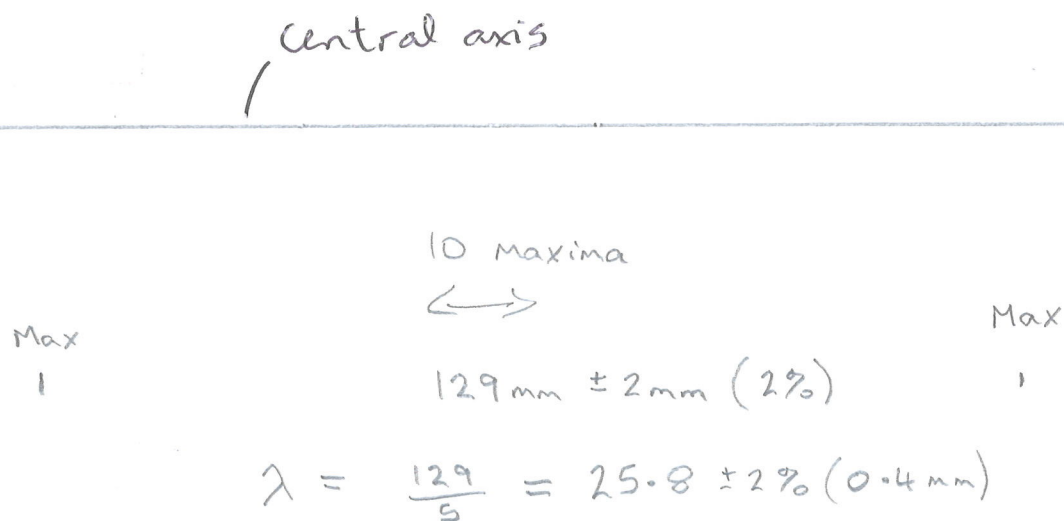 Central axis
10 Maxima
Max
Max
129mm ± 2mm (2%)
λ = 129/5 = 25.8 ± 2% (0.4mm)